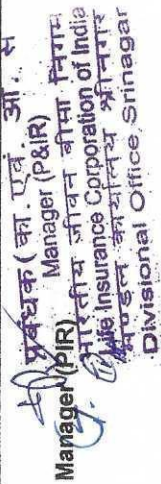 प्रबंधक ( का. एवं. औ. सं
Manager (P&IR)
Manager (PIR)
भारतीय जीवन बीमा निगम
Life Insurance Corporation of India
मण्डल कार्यालय श्रीनगर
Divisional Office Srinagar